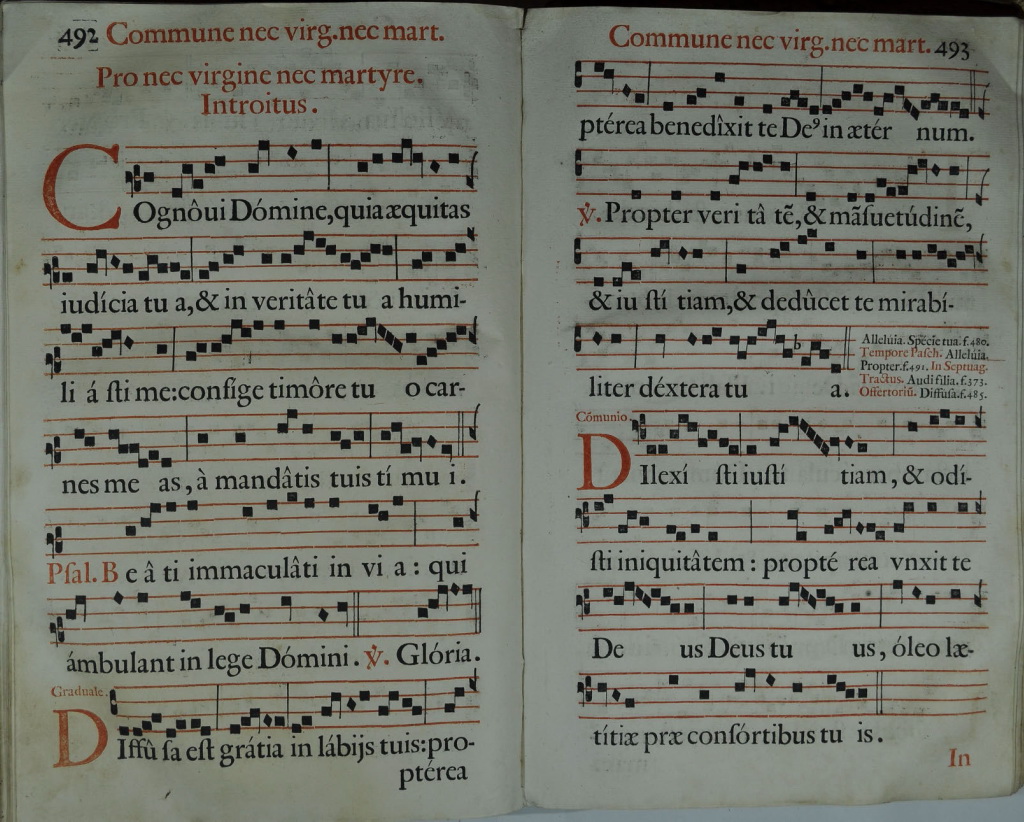 492 Commune nec virg.nec mart.
Pro nec virgine nec martyre.
Introitus.
COgnôui Dómine, quia æquitas
iudícia tu a, & in veritâte tu a humi-
li á sti me: confige timôre tu o car-
nes me as, à mandâtis tuis tí mu i.
Psal. B e â ti immaculâti in vi a: qui
ámbulant in lege Dómini. ℣. Glória.
Graduale.
DIffû sa est grátia in lábijs tuis: pro-
ptérea
Commune nec virg.nec mart. 493
ptérea benedîxit te Deꝰ in ætér num.
℣. Propter veri tâ tẽ, & mãsuetúdinẽ,
& iu stí tiam, & dedûcet te mirabí-
liter déxtera tu a.
Alleluia. Specie tua. f.480.
Tempore Pasch. Alleluia.
Propter. f.491. In Septuag.
Tractus. Audi filia. f.373.
Offertoriũ. Diffusa. f.485.
Cómunio.
DIlexí sti iusti tiam, & odí-
sti iniquitâtem: propté rea vnxit te
De us Deus tu us, óleo læ-
títiæ præ consórtibus tu is.
In